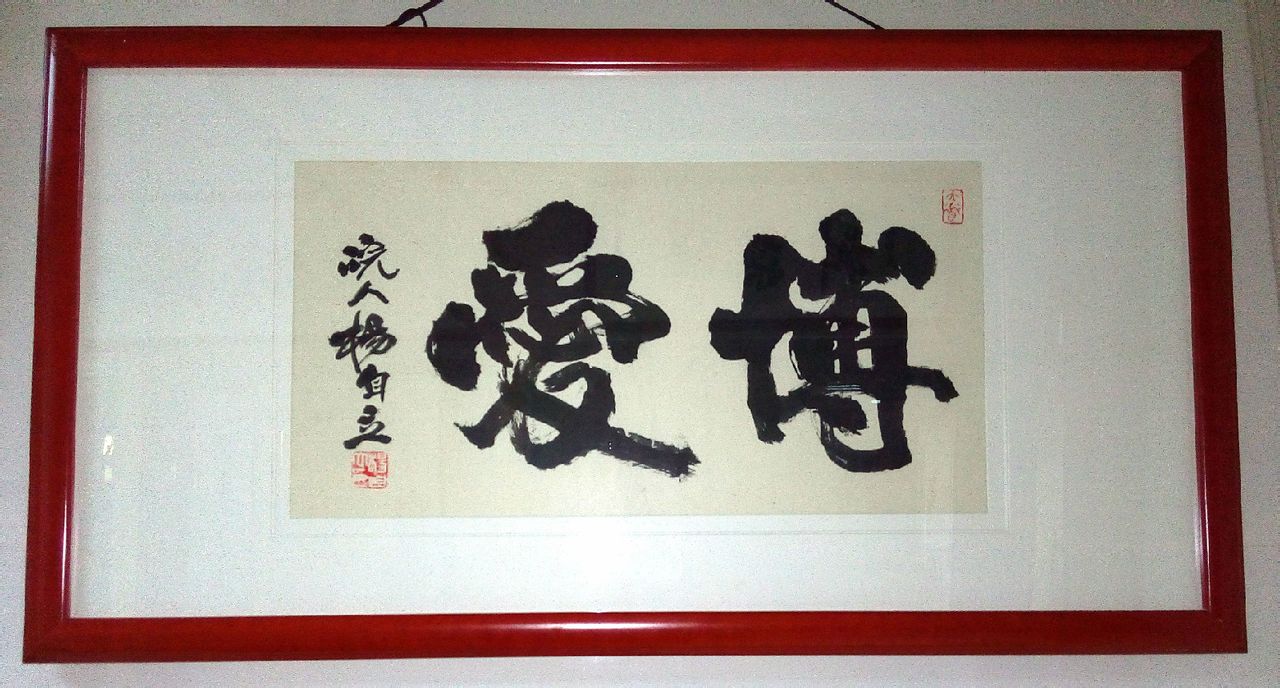 博愛
皖人楊自立